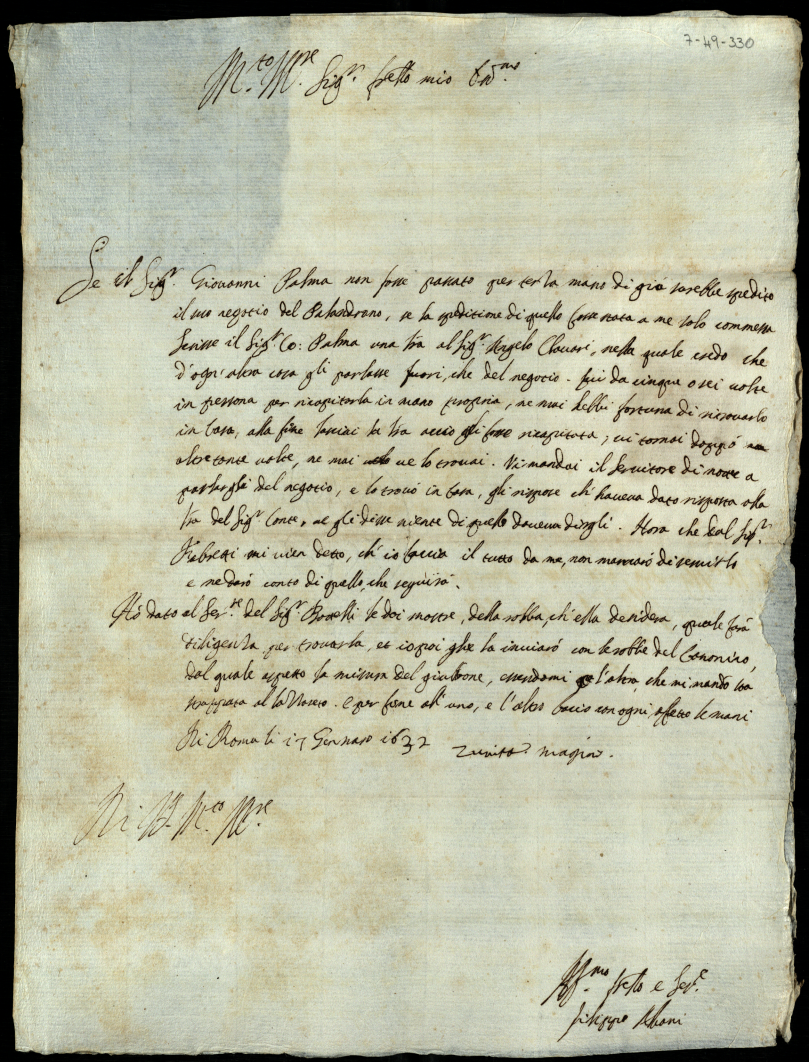 7-49-330
M.to Ill.re Sig.r fratello mio oss.mo
Se il Sig.r Giovanni Palma non fosse passato per terza mano di già sarebbe spedito
il suo negotio del Palandrano, se la speditione di quello fosse stata a me solo commessa
Scrisse il Sig.r Co: Palma una lra al Sig.r Angelo Clavari, nella quale credo che
d'ogn'altra cosa gli parlasse fuori, che del negotio. fui da cinque o sei volte
in persona per ricapitarla in mano propria, ne mai hebbi fortuna di ritrovarlo
in Casa, alla fine lasciai la lra acciò gli fosse ricapitata, vi tornai doppò
altre tante volte, ne mai ve lo trovai. Vi mandai il servitore di notte a
parlargli del negotio, e lo trovò in Casa, gli rispose ch'haveva dato risposta alla
lra del Sig.r Conte, ne gli disse niente di quello doveva dirgli. Hora che dal Sig.r
Fabretti mi vien detto, ch'io faccia il tutto da me, non mancarò di servirlo
e ne darò conto di quello, che seguirà.
Hò dato al Ser.re del Sig.r le doi mostre, della robba, ch'ella desidera, quale farà
diligenza per trovarla, et io poi glie la inviarò con le robbe del Canonino,
dal quale aspetto la misura del giubbone, essendomi l'altra, che mi mandò sta
strappata al lo Vaneto. e per fine all'uno, e l'altro bacio con ogni affetto le mani
Di Roma li 17 Gennaro 1632
Di V.S. M.to Ill.re
Aff.mo fratello e Ser.re
filippo Albani